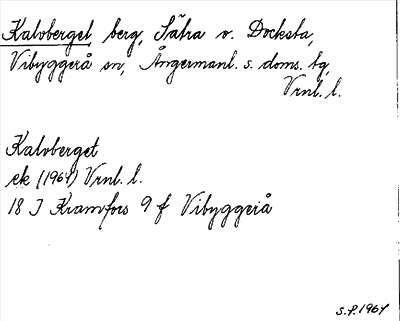 Kalvberget, berg, Sätra v. Docksta,
Vibyggerå sn, Ångermanl. s. doms. tg,
Vrnl. l.
Kalvberget
ek (1964) Vrnl. l.
18 J Kramfors 9 f Vibyggerå
S.F. 1964